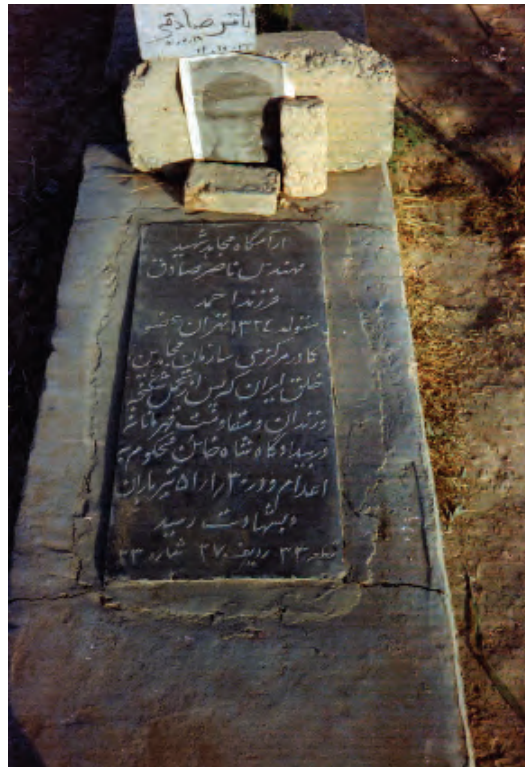 ناصر صادقی
آرامگاه مجاهد شهید
مهندس ناصر صادق
فرزند احمد
متولد ۱۳۲۴ تهران عضو
کادر مرکزی سازمان مجاهدین
خلق ایران که پس از تحمل شکنجه
و زندان و مقاومت قهرمانانه
در بیدادگاه شاه خائن محکوم به
اعدام و در ۳۰/۱/۵۱ تیرباران
و بشهادت رسید
قطعه ۳۳ ردیف ۲۷ شماره ۲۳